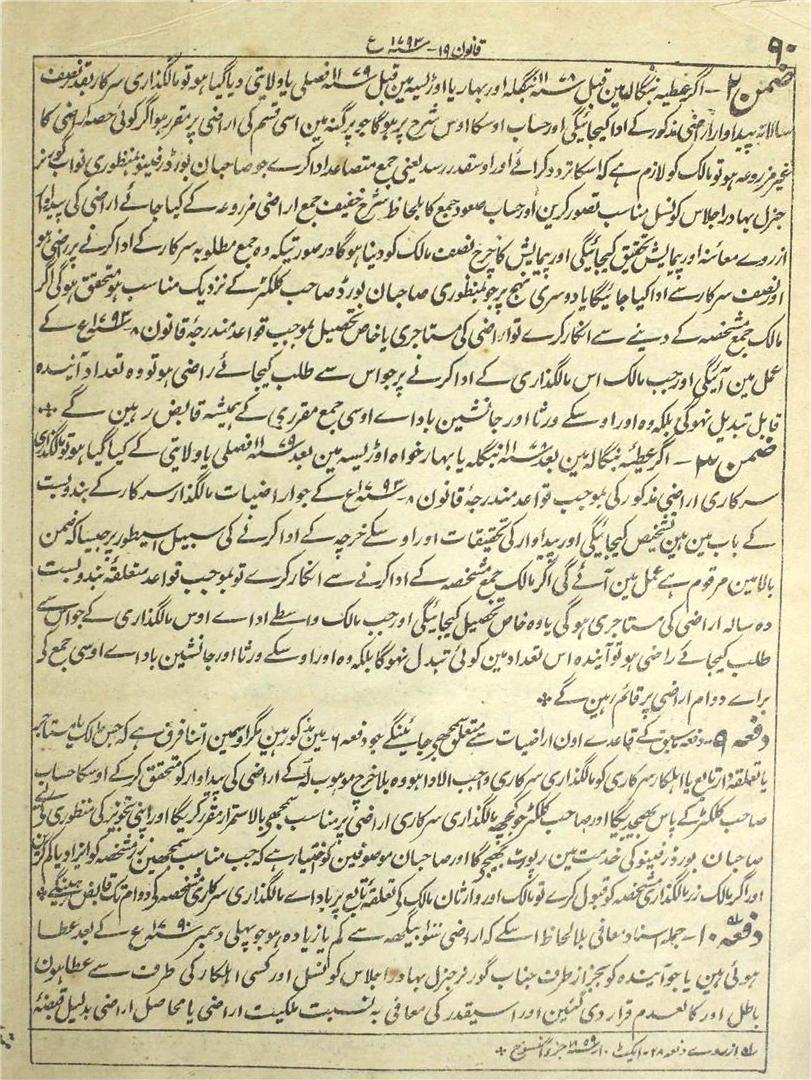 ۹۰
قانون ۱۹ - سنہ ۱۷۹۳ع
ضمن ۲ - اگر عطیہ بنگالہ مین قبل سنہ ۱۱۷۸ بنگلہ اور بہار یا اوڑیسہ مین قبل سنہ ۱۱۷۹ فصلی یا ولایتی دیا گیا ہو تو مالگذاری سرکار بقدر نصف
سالانہ پیداوار اراضی مذکور کے ادا کیجائیگی اور حساب اوسکا اوس شرح پر ہوگا جو پرگنہ مین اسی قسم کی اراضی پر مقرر ہو اگر کوئی حصہ اراضی کا
غیر مزروعہ ہو تو مالک کو لازم ہے کہ اسکا تردد کرائے اور اوسقدر رسد یعنی جمع متصاعد ادا کرے جو صاحبان بورڈ رفینو بمنظوری نواب گورنر
جنرل بہادر اجلاس کونسل مناسب تصور کرین اور حساب صعود جمع کا بلحاظ شرح خفیف جمع اراضی مزروعہ کے کیا جائے اراضی کی پیداوار
ازروے معائنہ اور پیمایش تحقیق کیجائیگی اور پیمایش کا خرچ نصف مالک کو دینا ہوگا درصورتیکہ وہ جمع مطلوبہ سرکار کے ادا کرنے پر راضی ہو
اور نصف سرکار سے ادا کیا جائیگا یا دوسری نہج پر جو بمنظوری صاحبان بورڈ صاحب کلکٹر کے نزدیک مناسب ہو متحقق ہوگی اگر
مالک جمع مشخصہ کے دینے سے انکار کرے تو اراضی کی مستاجری یا خاص تحصیل بموجب قواعد مندرجۂ قانون ۸ سنہ ۱۷۹۳ع کے
عمل مین آئیگی اور جب مالک اس مالگذاری کے ادا کرنے پر جو اس سے طلب کیجائے راضی ہو تو وہ تعداد آیندہ
قابل تبدیل نہوگی بلکہ وہ اور اوسکے ورثا اور جانشین باداے اوسی جمع مقرری کے ہمیشہ قابض رہین گے *
ضمن ۳ - اگر عطیۂ بنگالہ مین بعد سنہ ۱۱۷۸ بنگلہ یا بہار خواہ اوڑیسہ مین بعد سنہ ۱۱۷۹ فصلی یا ولایتی کے کیا گیا ہو تو مالگذاری
سرکاری اراضی مذکور کی بموجب قواعد مندرجۂ قانون ۸ سنہ ۱۷۹۳ع کے جو اراضیات مالگذار سرکار کے بندوبست
کے باب مین ہین تشخیص کیجائیگی اور پیداوار کی تحقیقات اور اوسکے خرچہ کے ادا کرنے کی سبیل اسیطور پر جیسا کہ ضمن
بالا مین مرقوم ہے عمل مین آئے گی اگر مالک جمع مشخصہ کے ادا کرنے سے انکار کرے تو بموجب قواعد متعلقہ بندوبست
دہ سالہ اراضی کی مستاجری ہوگی یا وہ خاص تحصیل کیجائیگی اور جب مالک واسطے اداے اوس مالگذاری کے جو اس سے
طلب کیجائے راضی ہو تو آیندہ اس تعداد مین کوئی تبدل نہوگا بلکہ وہ اور اوسکے ورثا اور جانشین باداے اوسی جمع کے
براے دوام اراضی پر قائم رہین گے *
دفعہ ۹ - دفعہ سبق کے قاعدے اون اراضیات سے متعلق سمجھے جائینگے جو دفعہ ۶ مین مذکور ہین مگر اوسمین اتنا فرق ہے کہ جس مالک یا مستاجر
یا تعلقہ دار تابع یا اہلکار سرکاری کو مالگذاری سرکاری واجب الادا ہو وہ بلا خرچ موہوب لہ کے اراضی کی پیداوار کو متحقق کرکے اوسکا حساب
صاحب کلکٹر کے پاس بھیجدیگا اور صاحب کلکٹر جو کچھ مالگذاری سرکاری اراضی پر مناسب سمجھے بالاستمرار مقرر کریگا اور اپنی تجویز کی منظوری کے لیے
صاحبان بورڈ رفینو کی خدمت مین رپورٹ بھیجے گا اور صاحبان موصوفین کو اختیار ہے کہ جب مناسب سمجھین زر مشخصہ کو ایزاد یا کم کرین
اور اگر مالک زر مالگذاری مشخصہ کو قبول کرے تو مالک اور وارثان مالک کی تعلقہ تابع پر باداے مالگذاری سرکاری مشخصہ کی دوام تک قابض رہینگے *
دفعہ ۱۰ - جملہ اسناد معافی بلا لحاظ اسکے کہ اراضی سَو بیگھہ سے کم یا زیادہ ہو جو پہلی دسمبر سنہ ۱۷۹۰ع کے بعد عطا
ہوئی ہین یا جو آیندہ کو بجز از طرف جناب گورنر جنرل بہادر اجلاس کونسل اور کسی اہلکار کی طرف سے عطا ہون
باطل اور کالعدم قرار دی گئین اور اسیقدر کی معافی بہ نسبت ملکیت اراضی یا محاصل اراضی بدلیل قبضۂ
ازروے دفعہ ۲۸ - ایکٹ ۱۰ سنہ ۱۸۵۹ جزءاً منسوخ *